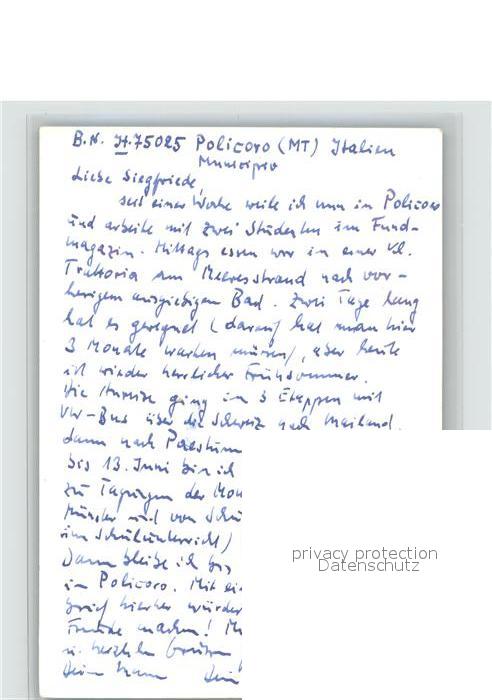 B.N. It.75025 Policoro (MT) Italien
Municipio
Liebe Siegfriede,
seit einer Woche weile ich nun in Policoro
und arbeite mit zwei Studenten im Fund-
magazin. Mittags essen wir in einer kl.
Trattoria am Meeresstrand nach vor-
herigem ausgiebigem Bad. Zwei Tage lang
hat es geregnet (darauf hat man hier
3 Monate warten müssen), aber heute
ist wieder herrlicher Frühsommer.
Die Anreise ging in 3 Etappen mit
VW-Bus über die Schweiz nach Mailand.
dann nach Paestum
bis 13. Juni bin ich
zu Tagungen der
Münster und von
im Schulunterricht)
Dann bleibe ich bis
in Policoro. Mit
Brief hierher würde
Freude machen!
u. herzliche Grüssen
Dein